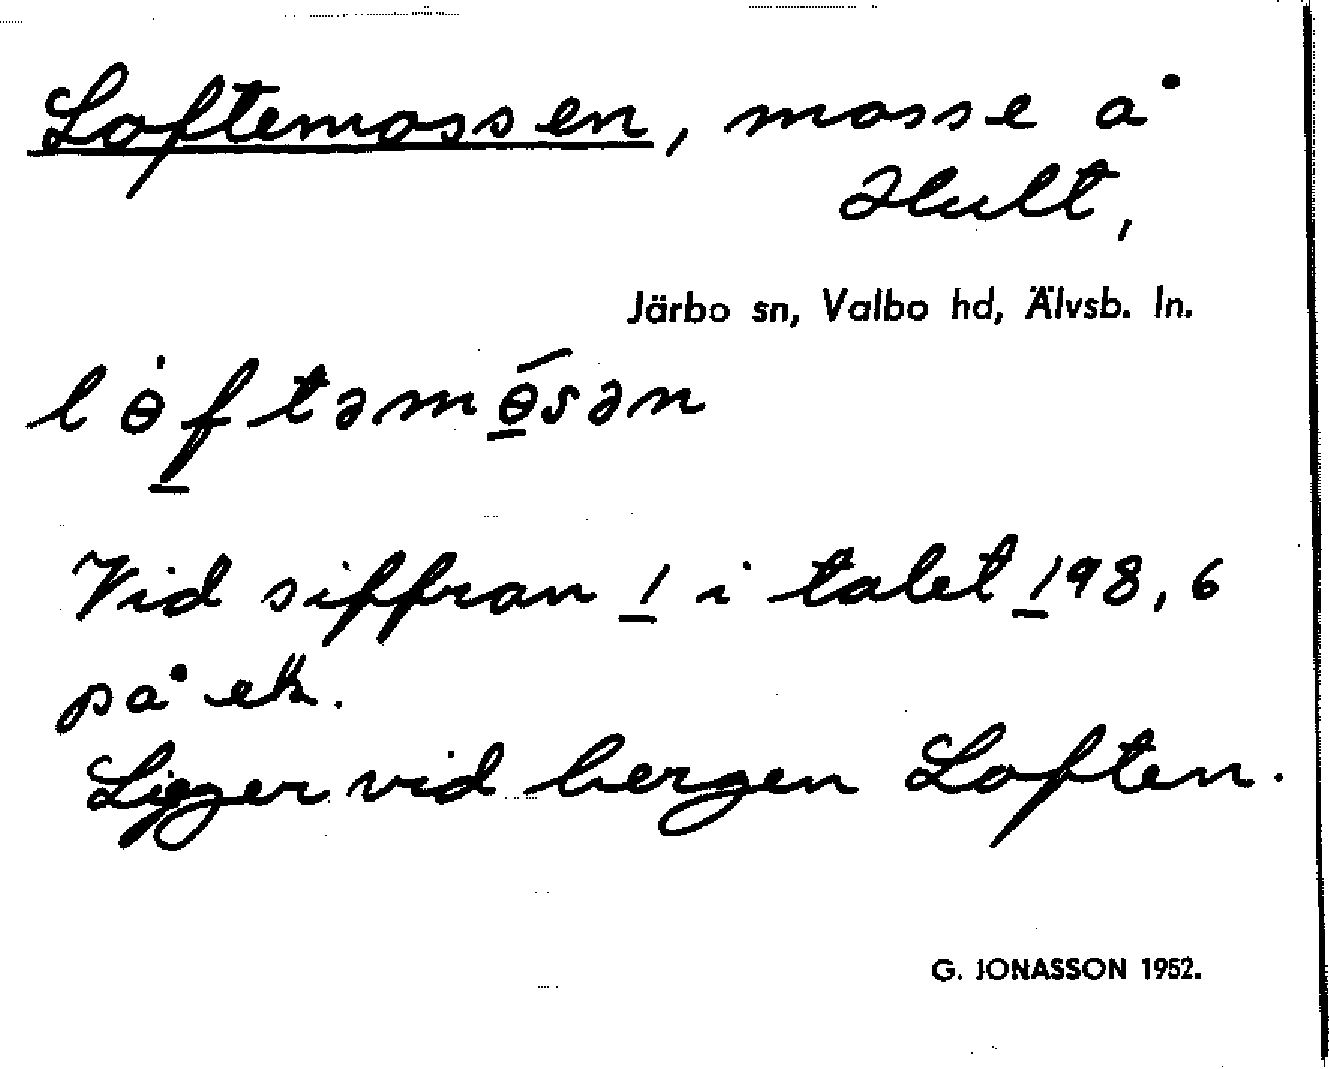 Loftemossen, mosse å
Hult,
Järbo sn, Valbo hd, Älvsb. ln.
lɵ̇f̲təmɵ̲́sən
Vid siffran 1 i talet 198,6
på ek.
Ligger vid bergen Loften.
G. JONASSON 1952.